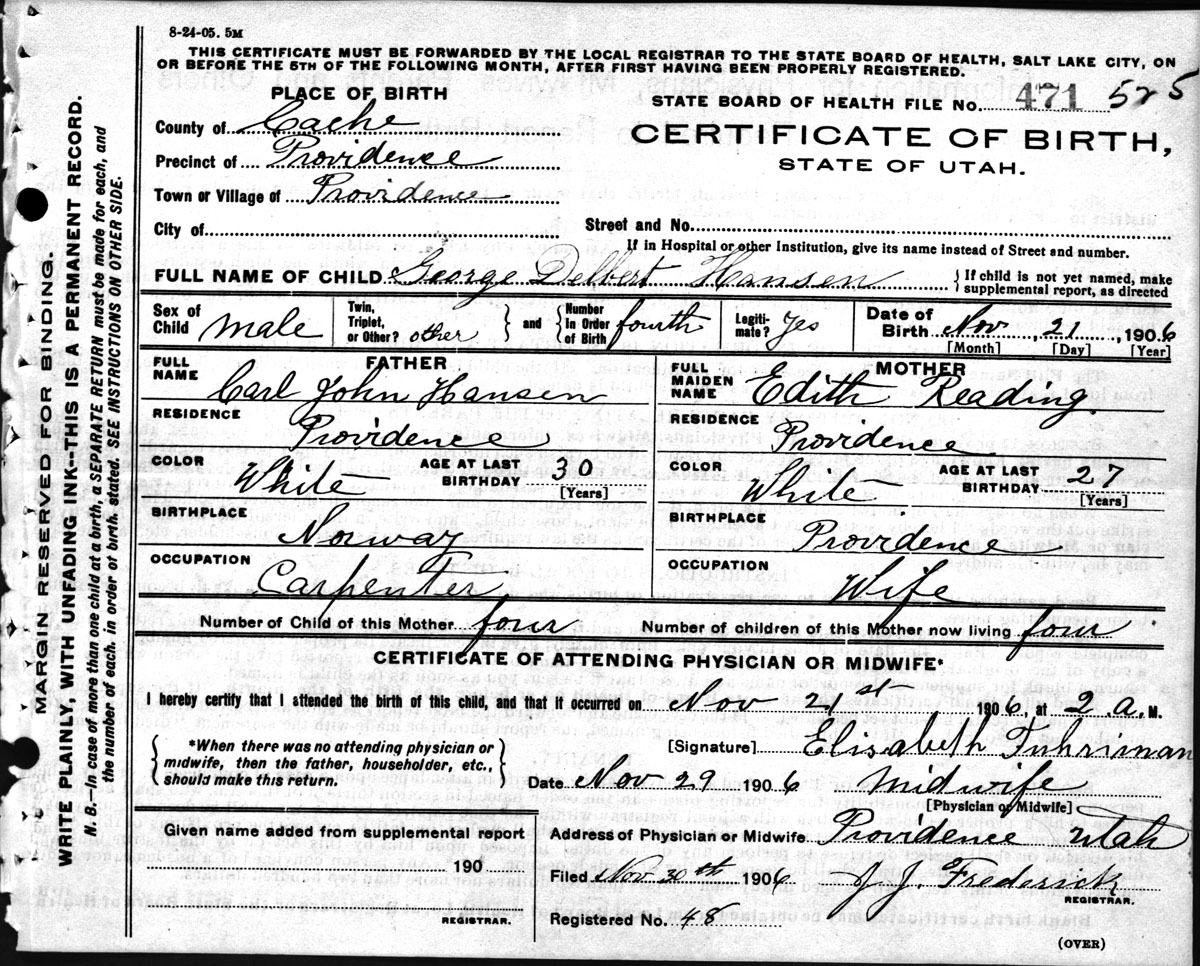 8-24-05. 5M
THIS CERTIFICATE MUST BE FORWARDED BY THE LOCAL REGISTRAR TO THE STATE BOARD OF HEALTH, SALT LAKE CITY, ON
OR BEFORE THE 5TH OF THE FOLLOWING MONTH, AFTER FIRST HAVING BEEN PROPERLY REGISTERED.
PLACE OF BIRTH
STATE BOARD OF HEALTH FILE No. 471 525
County of Cache
CERTIFICATE OF BIRTH,
Precinct of Providence
STATE OF UTAH.
Town or Village of Providence
City of
Street and No.
If in Hospital or other Institution, give its name instead of Street and number.
FULL NAME OF CHILD George Delbert Hansen { If child is not yet named, make
supplemental report, as directed
Sex of Child male
Twin, Triplet, or Other? other } and { Number In Order of Birth fourth
Legiti-mate? Yes
Date of Birth Nov, 21, 1906
[Month] [Day] [Year]
FATHER
FULL NAME Carl John Hansen
MOTHER
FULL MAIDEN NAME Edith Reading
RESIDENCE Providence
RESIDENCE Providence
COLOR White AGE AT LAST BIRTHDAY 30 [Years]
COLOR White AGE AT LAST BIRTHDAY 27 [Years]
BIRTHPLACE Norway
BIRTHPLACE Providence
OCCUPATION Carpenter
OCCUPATION Wife
Number of Child of this Mother four
Number of children of this Mother now living four
CERTIFICATE OF ATTENDING PHYSICIAN OR MIDWIFE*
I hereby certify that I attended the birth of this child, and that it occurred on Nov 21st 1906, at 2 a. M.
{ *When there was no attending physician or
midwife, then the father, householder, etc.,
should make this return. }
[Signature] Elisabeth Fuhriman
Date Nov 29 1906 Midwife
[Physician or Midwife]
Given name added from supplemental report
190
REGISTRAR.
Address of Physician or Midwife Providence Utah
Filed Nov 30th 1906 J. J. Frederick
REGISTRAR.
Registered No. 48
(OVER)
MARGIN RESERVED FOR BINDING.
WRITE PLAINLY, WITH UNFADING INK--THIS IS A PERMANENT RECORD.
N. B.—In case of more than one child at a birth, a SEPARATE RETURN must be made for each, and
the number of each, in order of birth, stated. SEE INSTRUCTIONS ON OTHER SIDE.